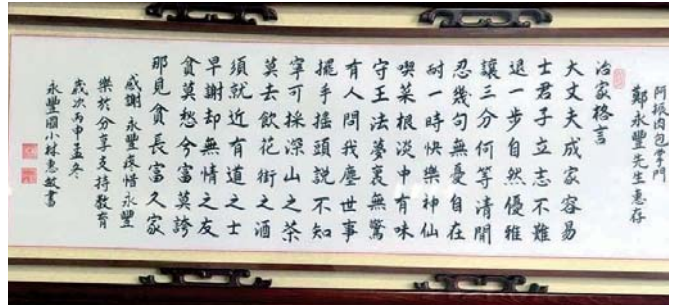 阿振肉包掌門
鄭永豐先生惠存
治家格言
大丈夫成家容易
士君子立志不難
退一步自然優雅
讓三分何等清閒
忍幾句無憂自在
耐一時快樂神仙
喫菜根淡中有味
守王法夢裏無驚
有人問我塵世事
擺手搖頭說不知
寧可採深山之茶
莫去飲花街之酒
須就近有道之士
早謝却無情之友
貧莫愁兮富莫誇
那見貧長富久家
感謝 永豐疼惜永豐
樂於分享支持教育
歲次丙申孟冬
永豐國小林惠敏書